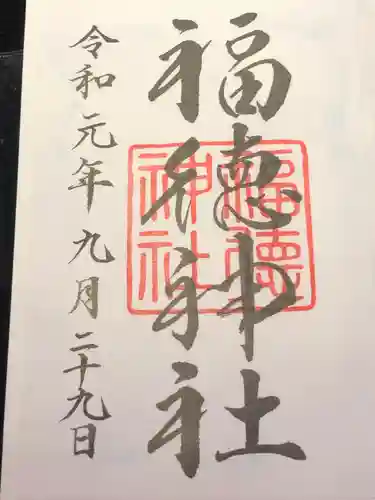 福徳神社
令和元年九月二十九日
福徳
神社